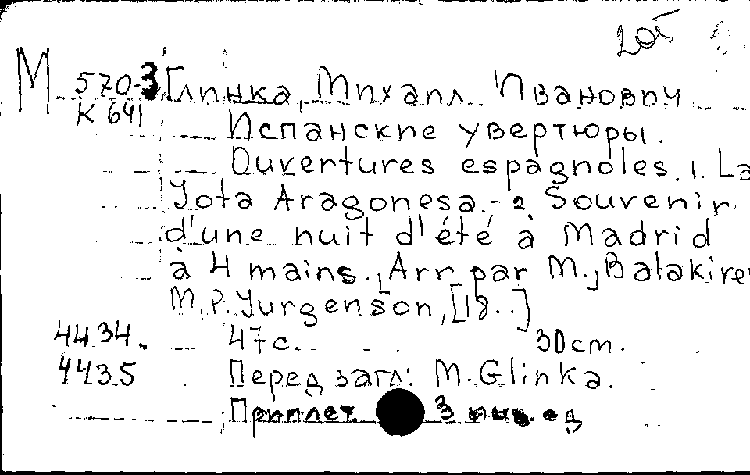 М 570-3 Глинка, Михаил Иванович
К 641 Испанские увертюры.
Ouvertures espagnoles. 1. La
Jota Aragonesa.- 2 Souvenir
d'une nuit d'été à Madrid
à 4 mains. Arr par M. Balakirev
M. P. Jurgenson, [18..]
4434. 47 с. 30 cm.
4435 Перед загл: M. Glinka.
Приплет 3 ед